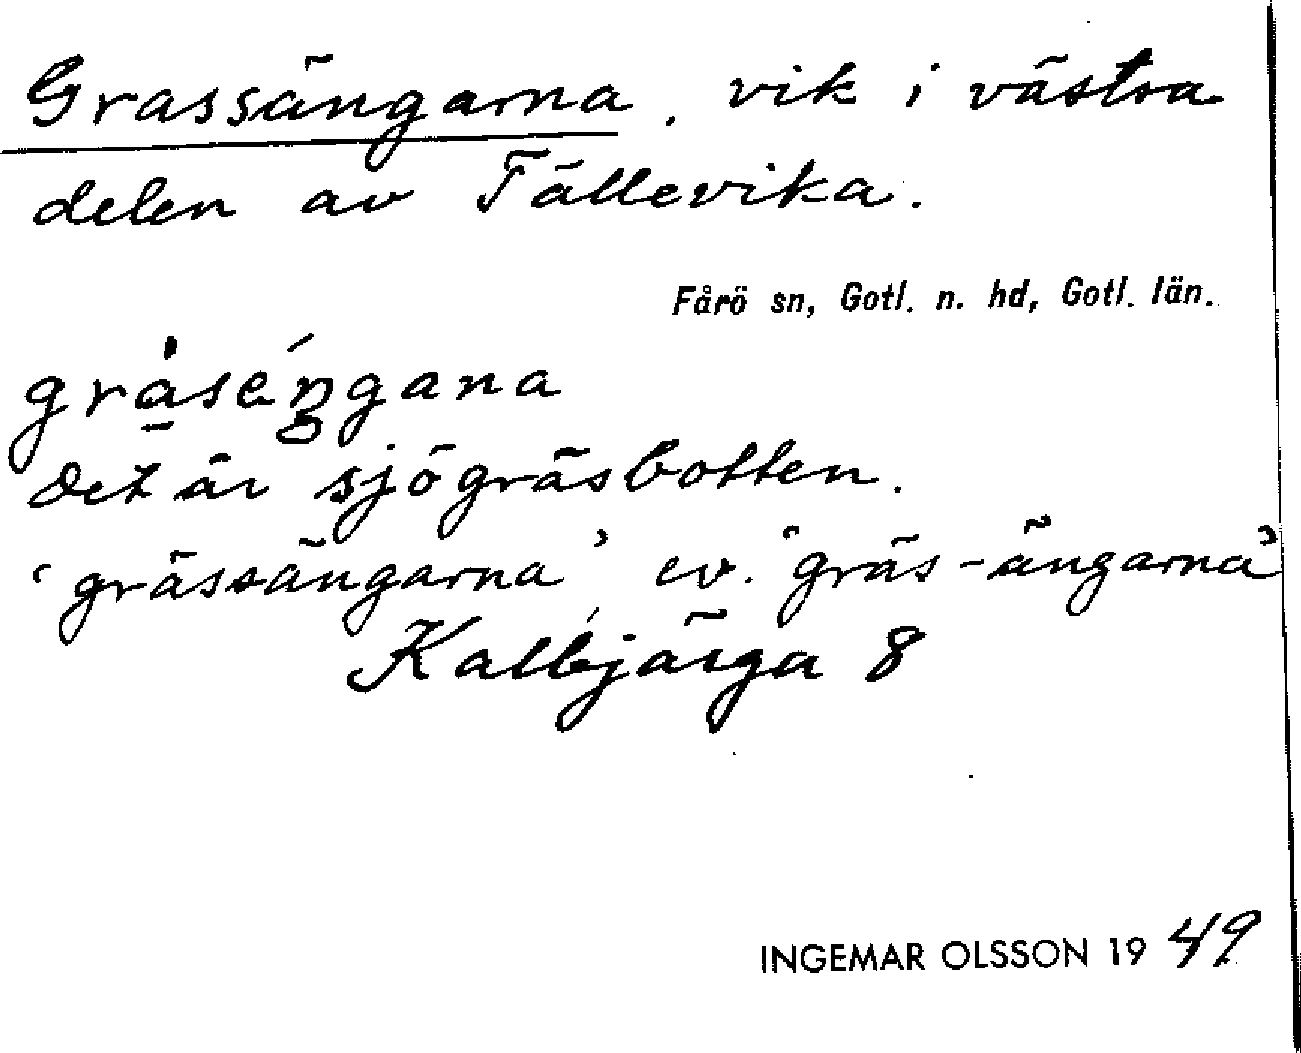 Grassängarna, vik i västra
delen av Fällevika.
Fårö sn, Gotl. n. hd, Gotl. län.
grà̱séŋgana
det är sjögräsbotten.
‘grässängarna’ ev. ‘gräs-ängarna’
Kalbjärga 8
INGEMAR OLSSON 1949